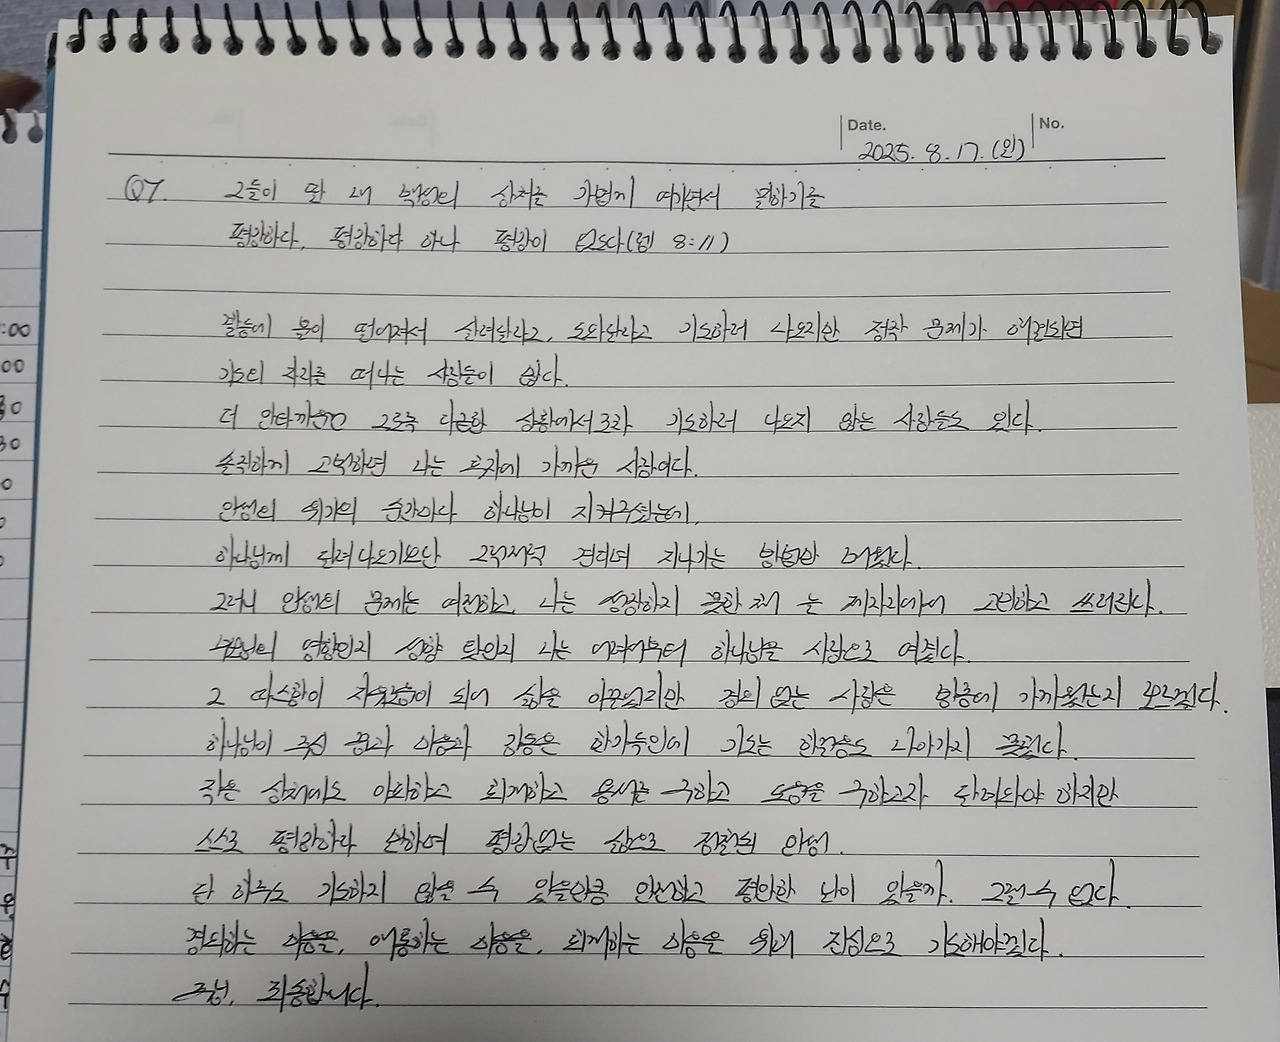 Date.
No.
2025. 8. 17. (일)
QT. 그들이 딸 내 백성의 상처를 가볍게 여기면서 말하기를
평강하다, 평강하다 하나 평강이 없도다(렘 8:11)
발등에 불이 떨어져서 살려달라고, 도와달라고 기도하러 나오지만 정작 문제가 해결되면
기도의 자리를 떠나는 사람들이 많다.
더 안타까운건 그토록 다급한 상황에서조차 기도하러 나오지 않는 사람들도 있다.
솔직하게 고백하면 나는 후자에 가까운 사람이다.
인생의 위기의 순간마다 하나님이 지켜주셨는데,
하나님께 달려나오기보단 그럭저럭 견디며 지나가는 방법만 배웠다.
그러니 인생의 문제는 여전하고, 나는 성장하지 못한 채 늘 제자리에서 고민하고 쓰러진다.
부모님의 영향인지 성향 탓인지 나는 어려서부터 하나님을 사랑으로 여겼다.
그 따스함이 자양분이 되어 삶을 이끈었지만 경외 없는 사랑은 방종에 가까웠는지 모르겠다.
하나님이 주신 꿈과 마음과 감동은 한가득인데 기도는 한걸음도 나아가지 못했다.
작은 상처에도 아파하고 회개하고 용서를 구하고 도움을 구하고자 달려와야 하지만
스스로 평강하다 말하며 평강없는 삶으로 점철된 인생.
단 하루도 기도하지 않을 수 있을만큼 안전하고 평안한 날이 있을까. 그럴수 없다.
경외하는 마음을, 애통하는 마음을, 회개하는 마음을 위해 진심으로 기도해야겠다.
주님, 죄송합니다.
:00
00
30
30